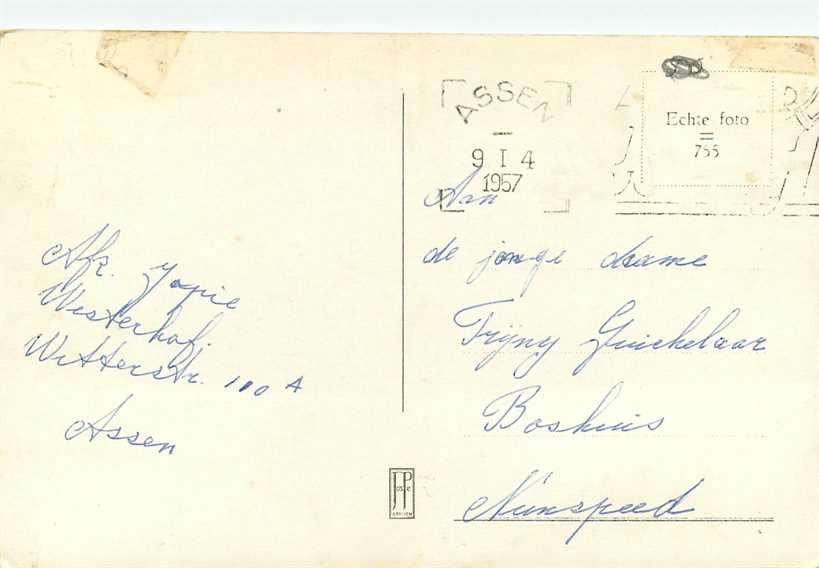 Afz. Jopie
Westerhof.
Witterstr. 110 A
Assen
ASSEN
9 I 4
1957
Echte foto
=
755
Aan
de jonge dame
Trijny Guichelaar
Boshuis
Nunspeed
JP